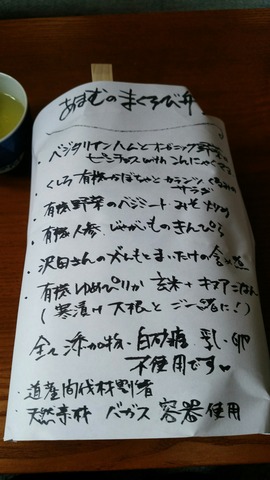 あすむのまくろび弁
・ベジタリアンハムとオーガニック野菜の
with こんにゃく
・くしろ有機かぼちゃとカラント くるみの
サラダ
・有機野菜のベジミート みそ炒め
・有機人参、じゃがいものきんぴら
・沢田さんの まいたけの
・有機ゆめぴりか 玄米+キヌアごはん
(寒漬け大根とご一緒に!)
全て添加物・白砂糖・乳・卵
不使用です
・道産間伐材割箸
・天然素材 バガス容器使用